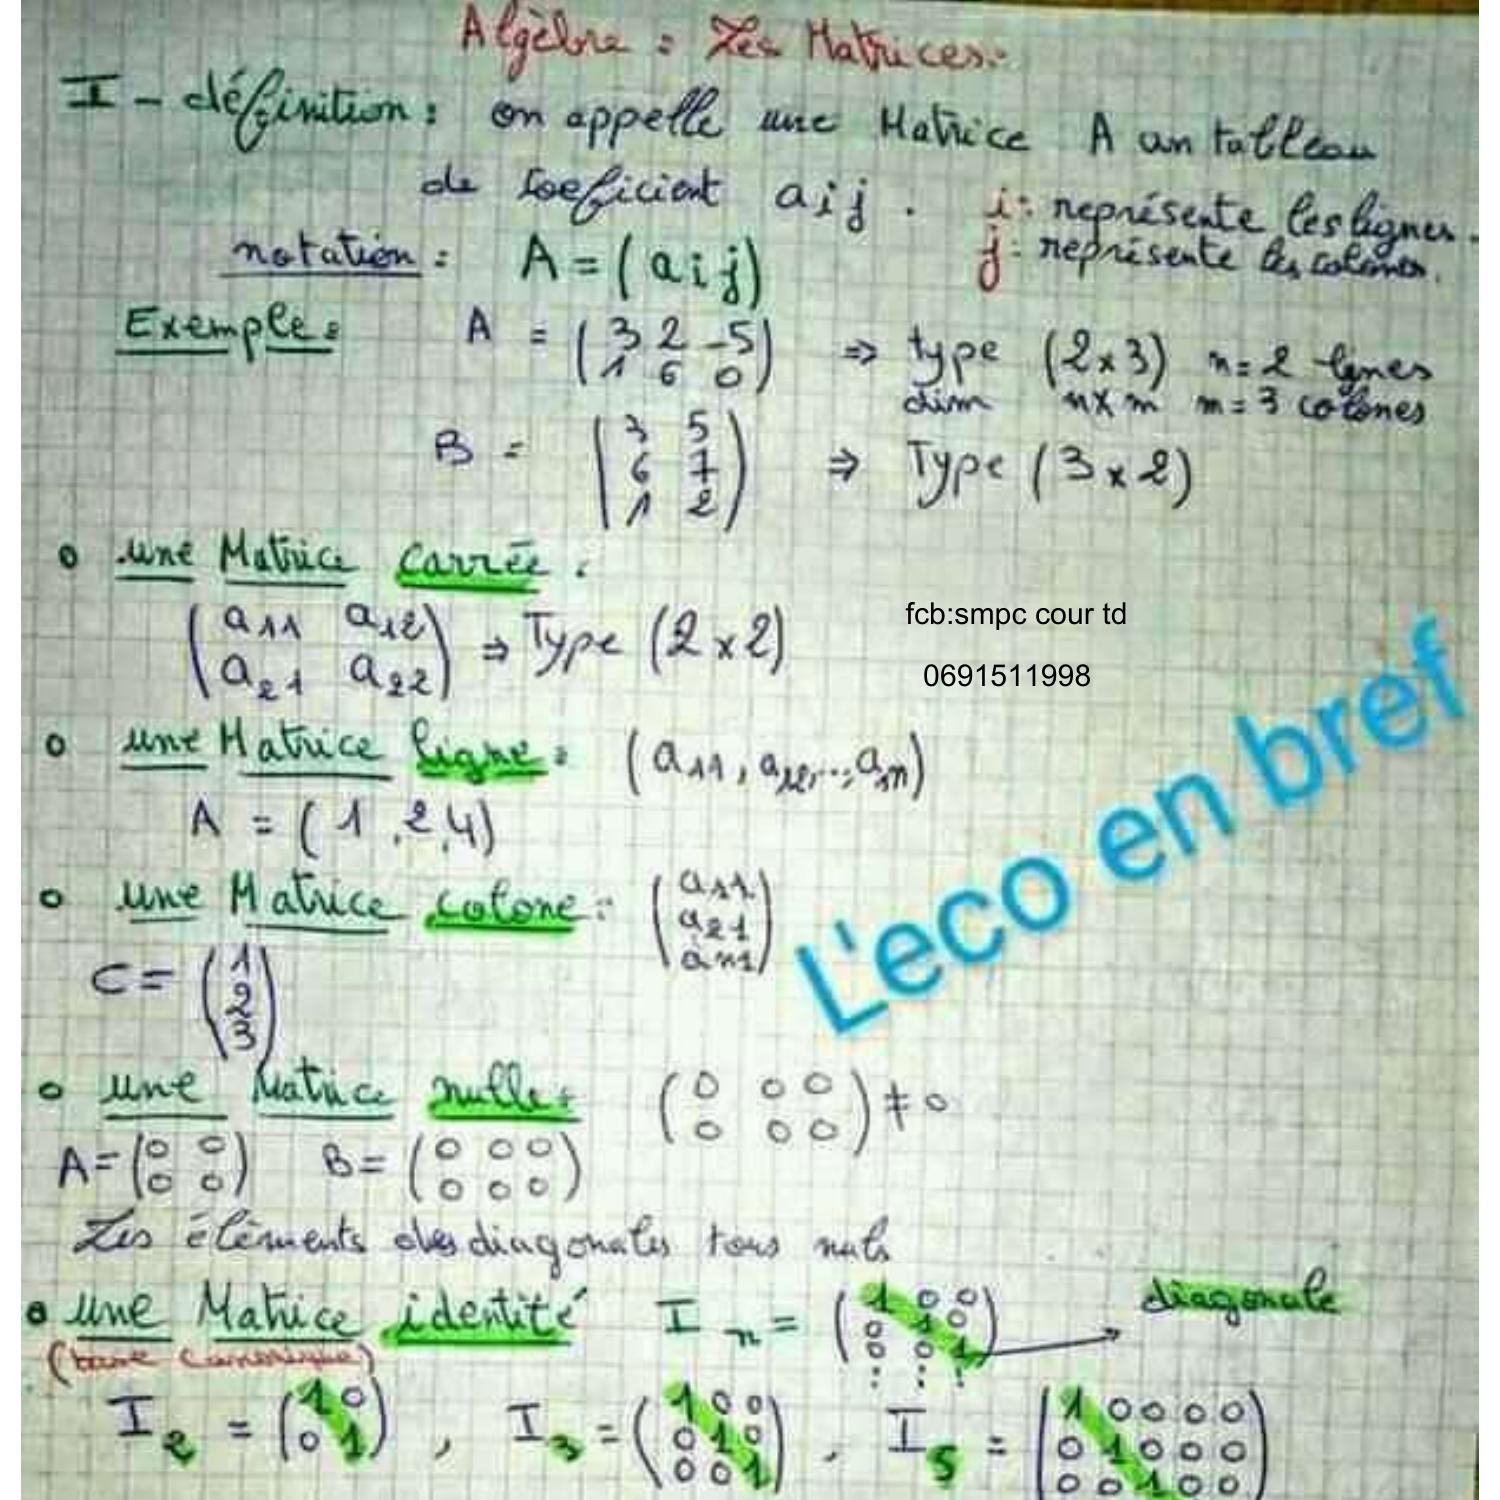 Algèbre : Les Matrices.
I - définition : on appelle une Matrice A un tableau
de coeficient aij . i : représente les lignes.
j : représente les colones.
notation : A = ( aij )
Exemple : A = ( 3 2 -5 ) ⇒ type (2x3) n=2 lgnes
( 1 6 0 ) dim nxm m=3 colones
B = ( 3 5 )
( 6 7 ) ⇒ Type (3x2)
( 1 2 )
o une Matrice Carrée :
( a11 a12 ) ⇒ Type (2x2)
( a21 a22 )
fcb:smpc cour td
0691511998
o une Matrice ligne : ( a11, a12,..., a1n )
A = ( 1 ,2,4)
o une Matrice colone : ( a11 )
( a21 )
( an1 )
C = ( 1 )
( 2 )
( 3 )
L'eco en bref
o une Matrice nulle : ( 0 0 0 ) ≠ 0
( 0 0 0 )
A = ( 0 0 ) B = ( 0 0 0 )
( 0 0 ) ( 0 0 0 )
Les éléments des diagonales tous nuls
o une Matrice identité In = ( 1 0 0 ) diagonale
( 0 1 0 )
( 0 0 1 )
I2 = ( 1 0 ) , I3 = ( 1 0 0 ) , I5 = ( 1 0 0 0 0 )
( 0 1 ) ( 0 1 0 ) ( 0 1 0 0 0 )
( 0 0 1 ) ( 0 0 1 0 0 )